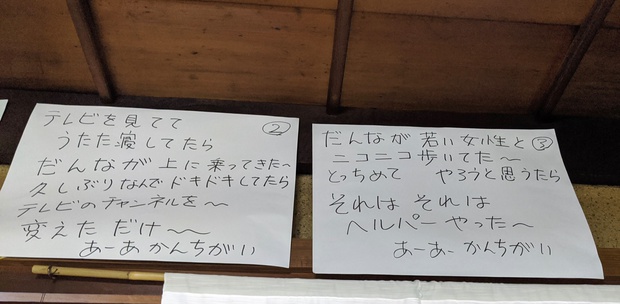 テレビを見てて ②
うたた寝してたら
だんなが上に乗ってきた〜
久しぶりなんでドキドキしてたら
テレビのチャンネルを〜
変えた だけ〜
あーあ かんちがい
だんなが 若い 女性と ③
ニコニコ歩いてた〜
とっちめて やろうと思うたら
それは それは
ヘルパー やった〜
あーあー かんちがい